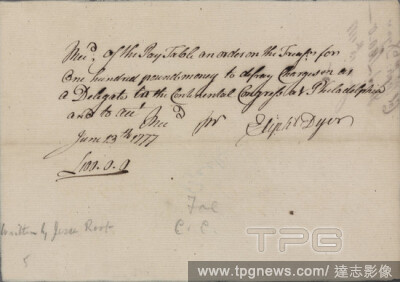 Rec.d of the Pay Table an order on the Treas.r for
One hundred pounds money to defray Charges on as
a Delegate to the Continental Congress at Philadelphia
and to acc.t Rec.d pr
June 23th 1777
Eliph.t Dyer
£100.0.0
written by Jesse Root
C. C.
5
TPG
www.tpgnews.com / 達志影像